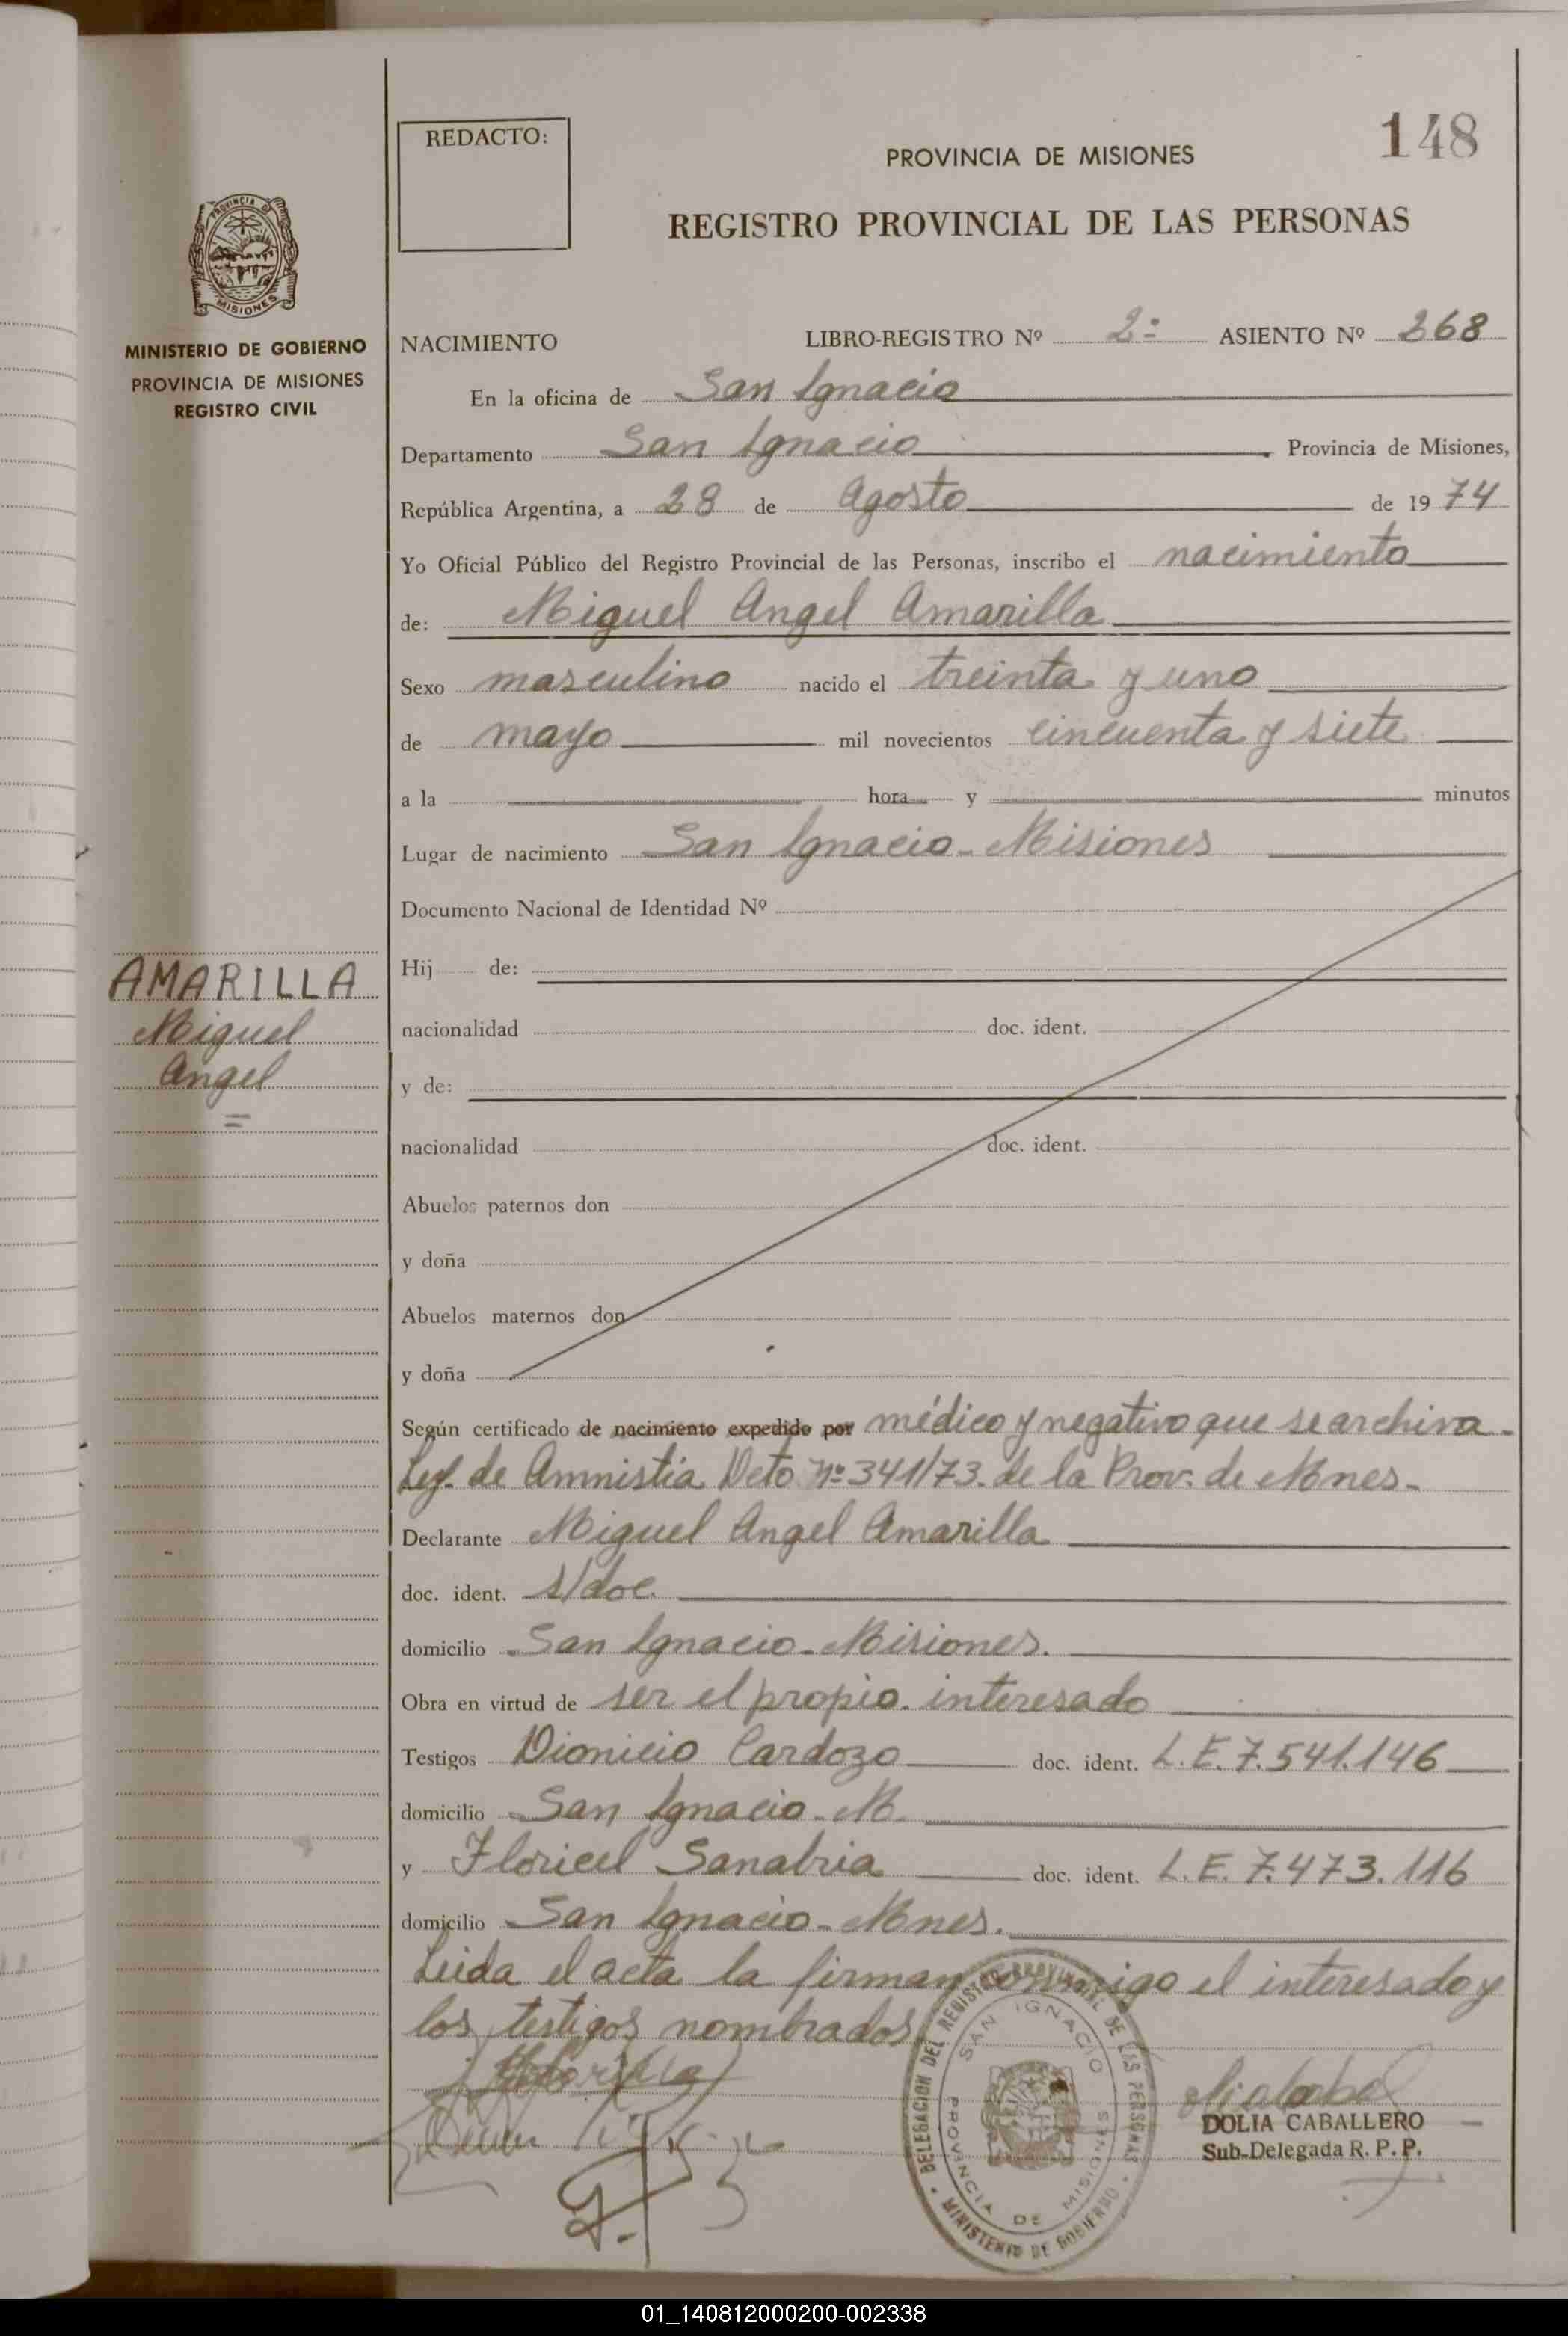 REDACTO:
PROVINCIA DE MISIONES
148
REGISTRO PROVINCIAL DE LAS PERSONAS
PROVINCIA DE
MISIONES
MINISTERIO DE GOBIERNO
PROVINCIA DE MISIONES
REGISTRO CIVIL
NACIMIENTO LIBRO-REGISTRO Nº 2º ASIENTO Nº 268
En la oficina de San Ignacio
Departamento San Ignacio Provincia de Misiones,
República Argentina, a 28 de Agosto de 1974
Yo Oficial Público del Registro Provincial de las Personas, inscribo el nacimiento
de: Miguel Angel Amarilla
Sexo masculino nacido el treinta y uno
de mayo mil novecientos cincuenta y siete
a la hora y minutos
Lugar de nacimiento San Ignacio - Misiones
Documento Nacional de Identidad Nº
AMARILLA
Miguel
Angel
Hij de:
nacionalidad doc. ident.
y de:
nacionalidad doc. ident.
Abuelos paternos don
y doña
Abuelos maternos don
y doña
Según certificado de nacimiento expedido por médico y negativo que se archiva.
Ley. de Amnistia Deto nº 341/73. de la Prov. de Mnes-
Declarante Miguel Angel Amarilla
doc. ident. s/doc.
domicilio San Ignacio - Misiones.
Obra en virtud de ser el propio interesado
Testigos Dionicio Cardozo doc. ident. L.E. 7.541.146
domicilio San Ignacio - M.
y Floricel Sanabria doc. ident. L.E. 7.473.116
domicilio San Ignacio - Mnes.
Leida el acta la firman conmigo el interesado y
los testigos nombrados
DELEGACION DEL REGISTRO PROVINCIAL DE LAS PERSONAS
MINISTERIO DE GOBIERNO
SAN IGNACIO
PROVINCIA DE MISIONES
DOLIA CABALLERO
Sub-Delegada R. P. P.
01_140812000200-002338